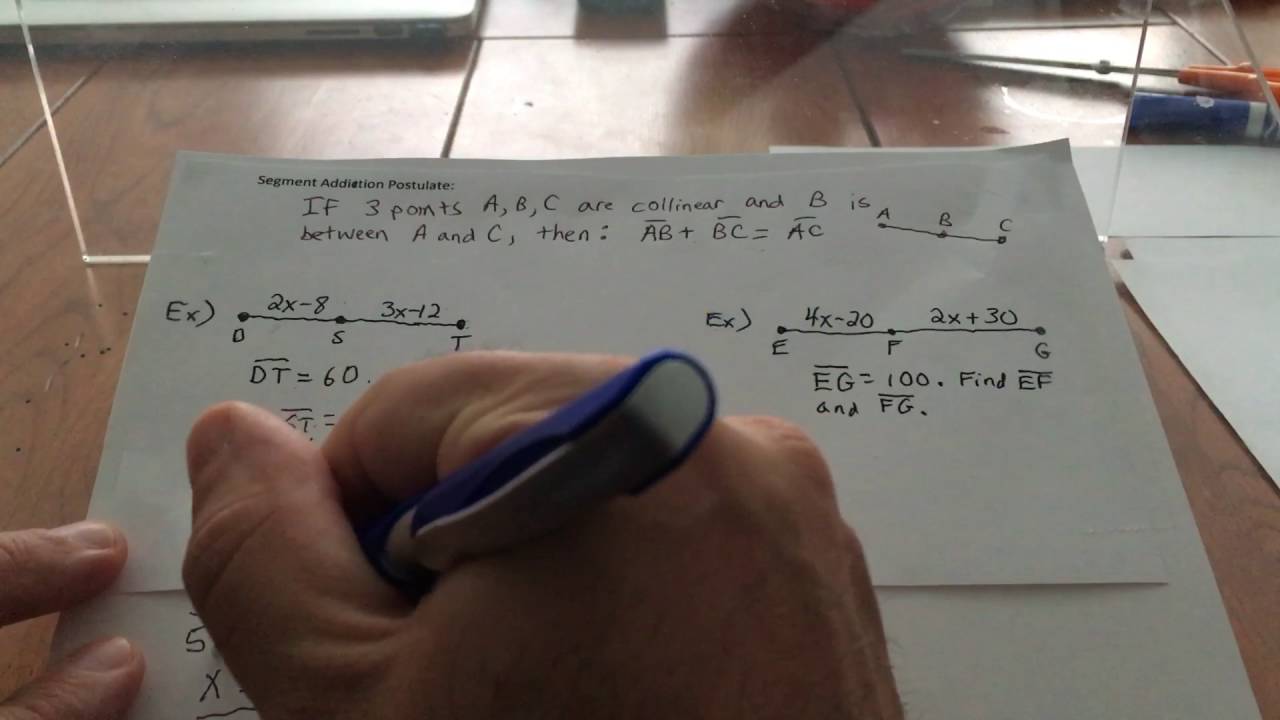 Segment Addiction Postulate:
If 3 points A, B, C are collinear and B is
between A and C, then: AB + BC = AC
A B C
Ex) 2x-8 3x-12
D S T
DT = 60.
ST =
5
X
Ex) 4x-20 2x+30
E F G
EG = 100. Find EF
and FG.